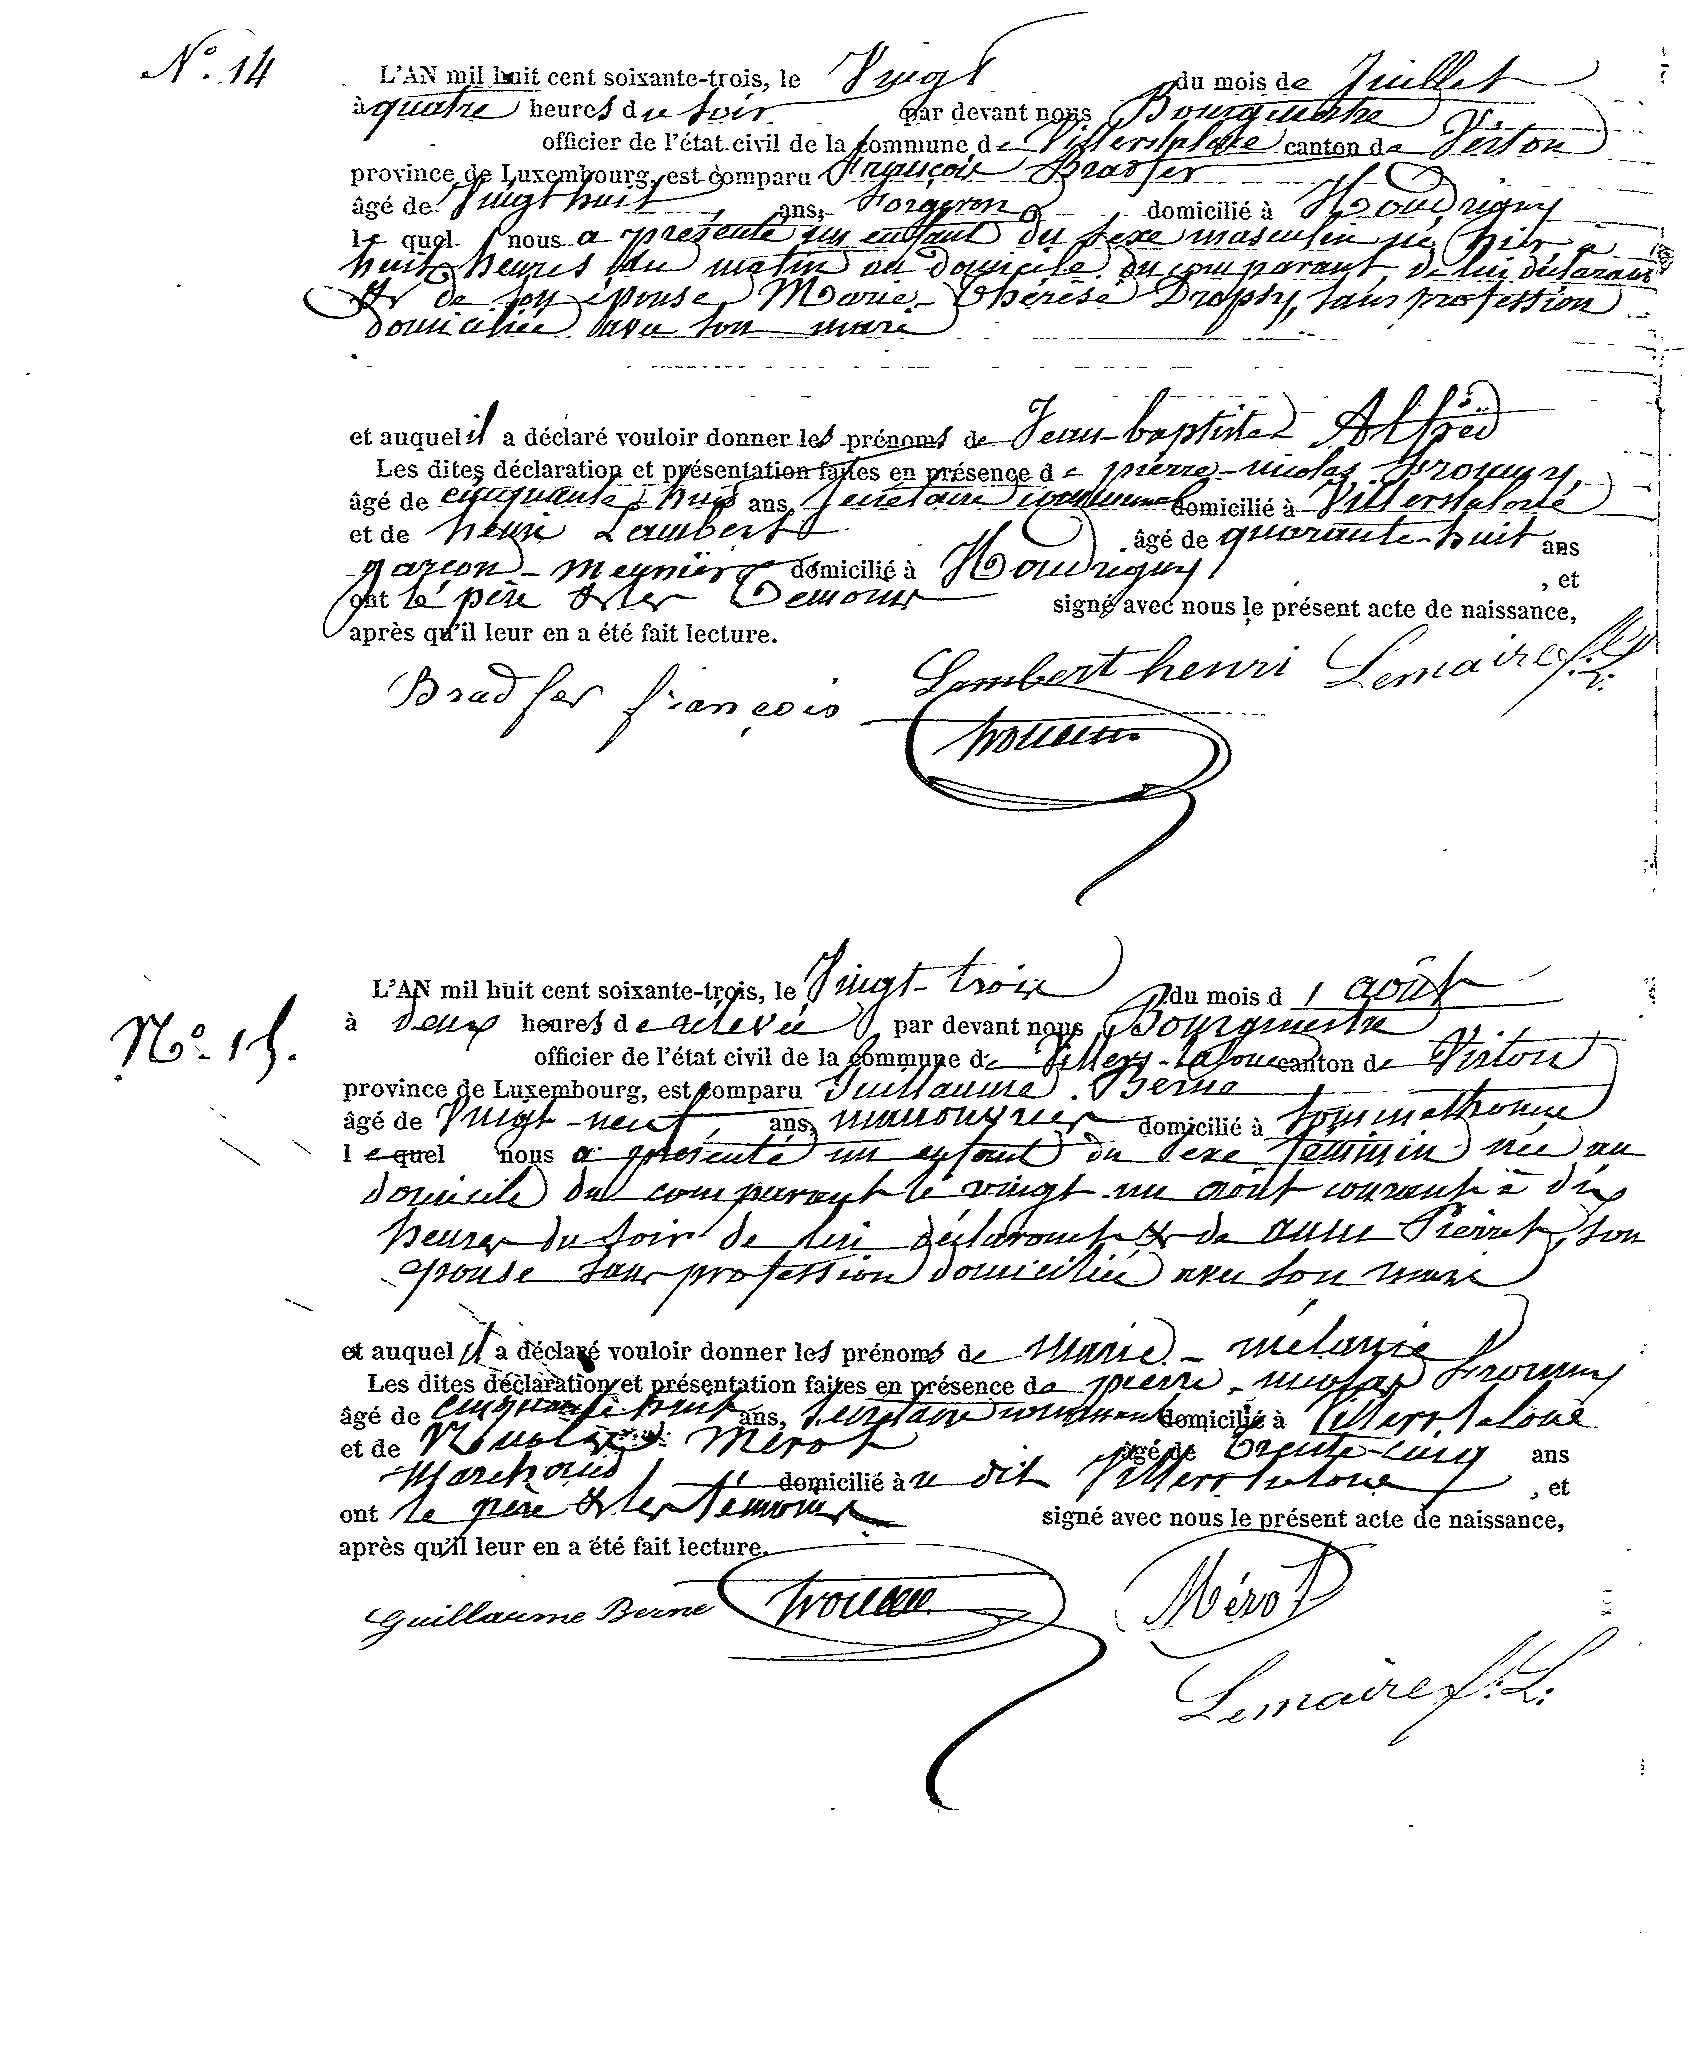 N.° 14
L'AN mil huit cent soixante-trois, le Vingt du mois de Juillet
à quatre heures du soir par devant nous Bourgmestre
officier de l'état civil de la commune de Villerslaloue canton de Virton
province de Luxembourg, est comparu François Bradfer
âgé de Vingt huit ans, forgeron domicilié à Houdrigny
le quel nous a présenté un enfant du sexe masculin né hier à
huit heures du matin au domicile du comparant, de lui déclarant
& de son épouse Marie-Thérèse Dropsy, sans profession
domiciliée avec son mari
et auquel il a déclaré vouloir donner les prénoms de Jean-baptiste Alfred
Les dites déclaration et présentation faites en présence de pierre-nicolas
âgé de cinquante huit ans, secrétaire communal domicilié à Villerslaloue
et de henri Lambert âgé de quarante-huit ans
garçon-meunier domicilié à Houdrigny , et
ont le père & les témoins signé avec nous le présent acte de naissance,
après qu'il leur en a été fait lecture.
Bradfer françois Lambert henri Lemaire f. L.
N.° 15.
L'AN mil huit cent soixante-trois, le Vingt-trois du mois d' août
à deux heures de relevée par devant nous Bourgmestre
officier de l'état civil de la commune de Villers-laloue canton de Virton
province de Luxembourg, est comparu Guillaume Berne
âgé de Vingt-neuf ans, manouvrier domicilié à Sommethonne
le quel nous a présenté un enfant du sexe féminin née au
domicile du comparant le vingt-un août courant à dix
heures du soir de lui déclarant & de anne Pierret, son
épouse sans profession domiciliée avec son mari
et auquel il a déclaré vouloir donner les prénoms de Marie-mélanie
Les dites déclaration et présentation faites en présence de pierre-nicolas
âgé de cinquante huit ans, secrétaire communal domicilié à Villerslaloue
et de Nicolas Mérot âgé de trente-cinq ans
Marchand domicilié à u dit Villerslaloue , et
ont le père & les témoins signé avec nous le présent acte de naissance,
après qu'il leur en a été fait lecture.
Guillaume Berne Mérot
Lemaire f. L.